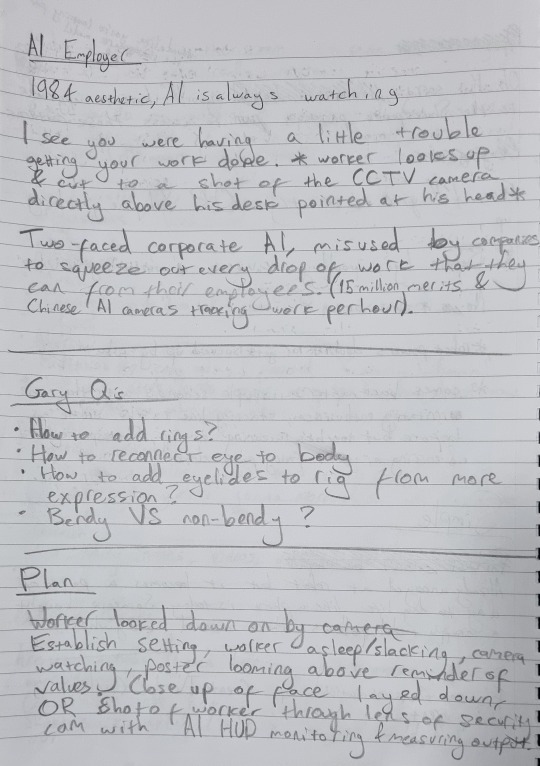 AI Employer
1984 aesthetic, AI is always watching
I see you were having a little trouble
getting your work done. *worker looks up
& cut to a shot of the CCTV camera
directly above his desk pointed at his head*
Two-faced corporate AI, misused by companies
to squeeze out every drop of work that they
can from their employees. (15 million merits &
Chinese AI cameras tracking work per hour).
Gary Q's
• How to add rings?
• How to reconnect eye to body
• How to add eyelides to rig from more
expression?
• Bendy VS non-bendy?
Plan
Worker looked down on by camera
Establish setting, worker asleep/slacking, camera
watching, poster looming above reminder of
values. Close up of face layed down,
OR shot of worker through lens of security
cam with AI HUD monitoring & measuring output.